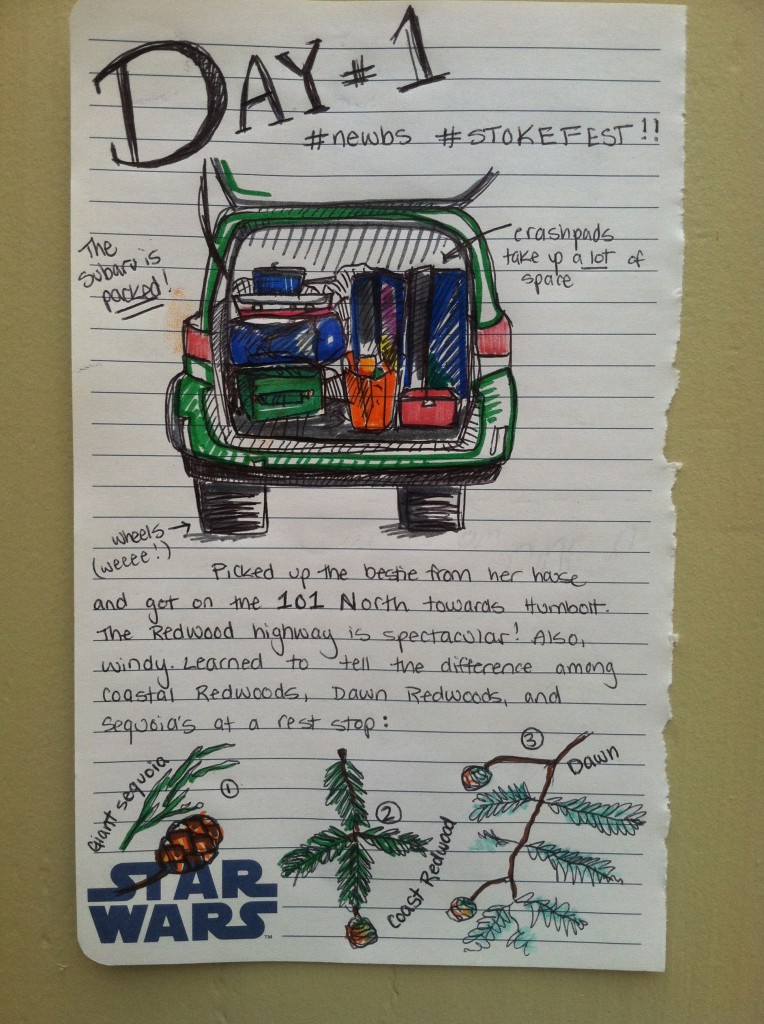 DAY #1
#newbs #STOKEFEST!!
The
Subaru is
packed!
crashpads
take up a lot of
space
wheels
(weeee!)
Picked up the bestie from her house
and got on the 101 North towards Humbolt.
The Redwood highway is spectacular! Also,
windy. Learned to tell the difference among
Coastal Redwoods, Dawn Redwoods, and
Sequoia's at a rest stop:
Giant Sequoia
1
2
Coast Redwood
3
Dawn
STAR
WARS™